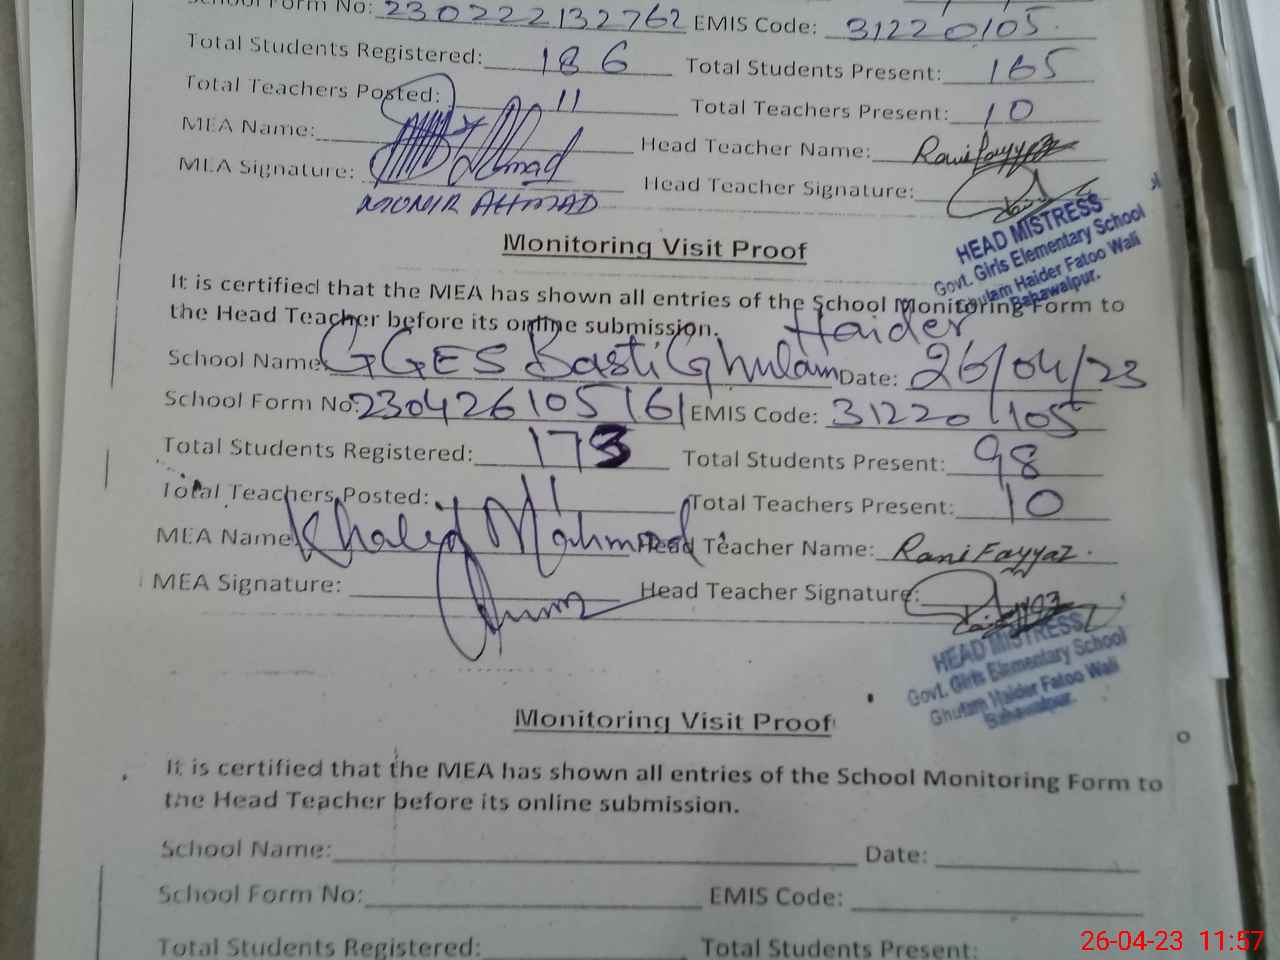 School Form No: 230222132762 EMIS Code: 31220105.
Total Students Registered: 186 Total Students Present: 165
Total Teachers Posted: 11 Total Teachers Present: 10
MEA Name: Head Teacher Name: Rani Fayyaz
MEA Signature: Ahmad Head Teacher Signature:
MUNIR AHMAD
HEAD MISTRESS
Govt. Girls Elementary School
Ghulam Haider Fatoo Wali
Bahawalpur.
Monitoring Visit Proof
It is certified that the MEA has shown all entries of the School Monitoring Form to
the Head Teacher before its online submission.
School Name: GGES Basti Ghulam Haider Date: 26/04/23
School Form No: 230426105161 EMIS Code: 31220105
Total Students Registered: 173 Total Students Present: 98
Total Teachers Posted: 11 Total Teachers Present: 10
MEA Name: Khaled Mahmood Head Teacher Name: Rani Fayyaz.
MEA Signature: Head Teacher Signature:
HEAD MISTRESS
Govt. Girls Elementary School
Ghulam Haider Fatoo Wali
Bahawalpur.
Monitoring Visit Proof
It is certified that the MEA has shown all entries of the School Monitoring Form to
the Head Teacher before its online submission.
School Name: Date:
School Form No: EMIS Code:
Total Students Registered: Total Students Present:
26-04-23 11:57